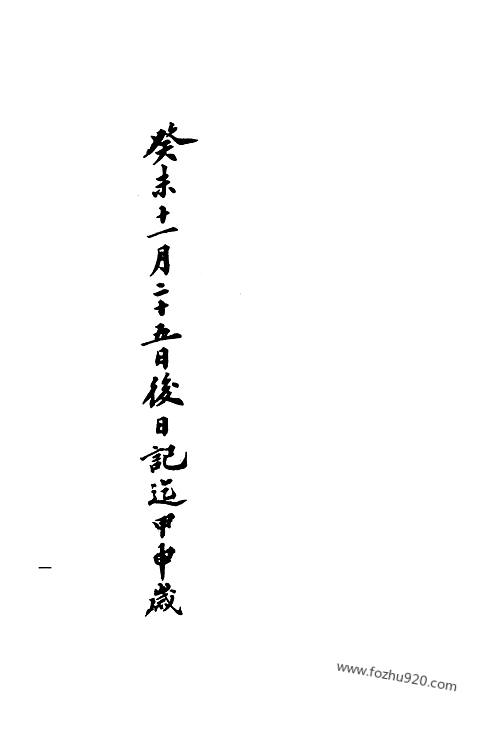 癸未十一月二十五日後日記迄甲申歲
一
www.fozhu920.com